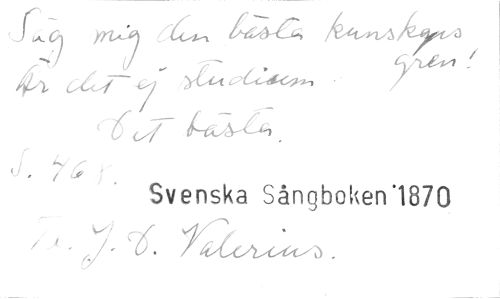 Säg mig den bästa kunskaps
gren!
Är det ej studium
Det bästa.
S. 468.
Svenska Sångboken 1870
Tr. J. D. Valerius.